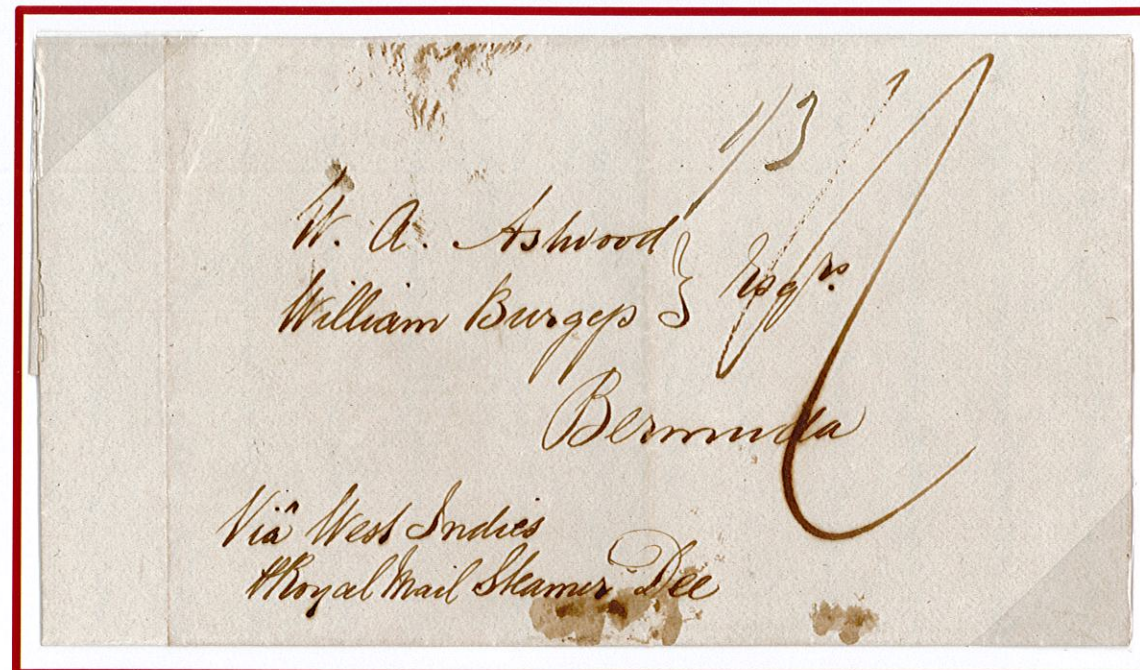 1/3
W. A. Ashwood
William Burgess } Esqrs.
Bermuda
Viâ West Indies
⅌ Royal Mail Steamer Dee